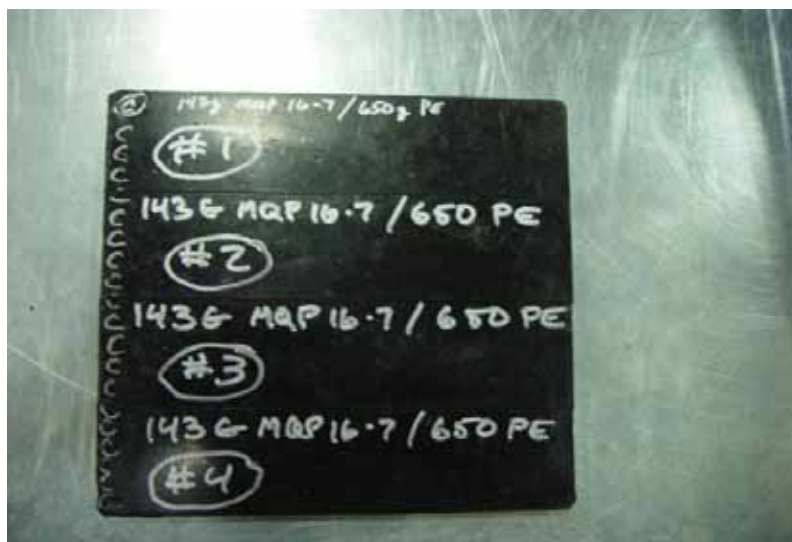 ② 143g MQP 16-7/650g PE
#1
143G MQP 16-7/650 PE
#2
143G MQP 16-7/650 PE
#3
143G MQP 16-7/650 PE
#4